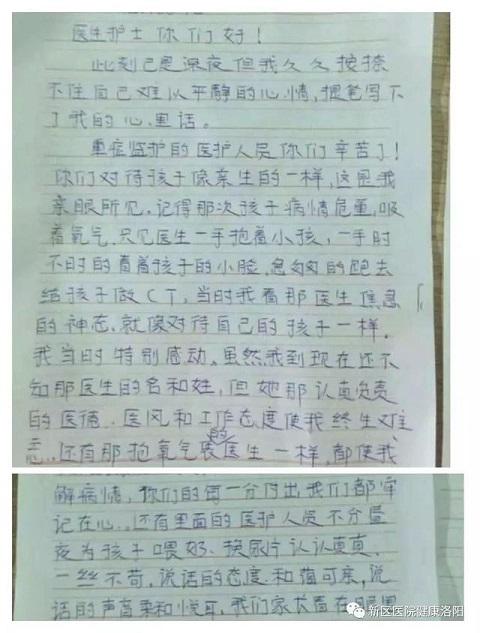 医生护士你们好！
此刻已是深夜但我久久按捺
不住自己难以平静的心情,把笔写下
了我的心里话。
重症监护的医护人员你们辛苦了！
你们对待孩子像亲生的一样,这是我
亲眼所见,记得那次孩子病情危重,吸
着氧气,只见医生一手抱着小孩,一手时
不时的看着孩子的小脸,急匆匆的跑去
给孩子做CT,当时我看那医生焦急
的神态,就像对待自己的孩子一样,
我当时特别感动。虽然我到现在还不
知那医生的名和姓,但她那认真负责
的医德、医风和工作态度使我终生难
忘,还有那抱氧气袋的医生一样,都使我
解病情,你们的每一分付出,我们都牢
记在心。还有里面的医护人员不分昼
夜为孩子喂奶、换尿片认认真真,
一丝不苟,说话的态度和蔼可亲,说
话的声音柔和悦耳,我们家长看在眼里
新区医院健康洛阳